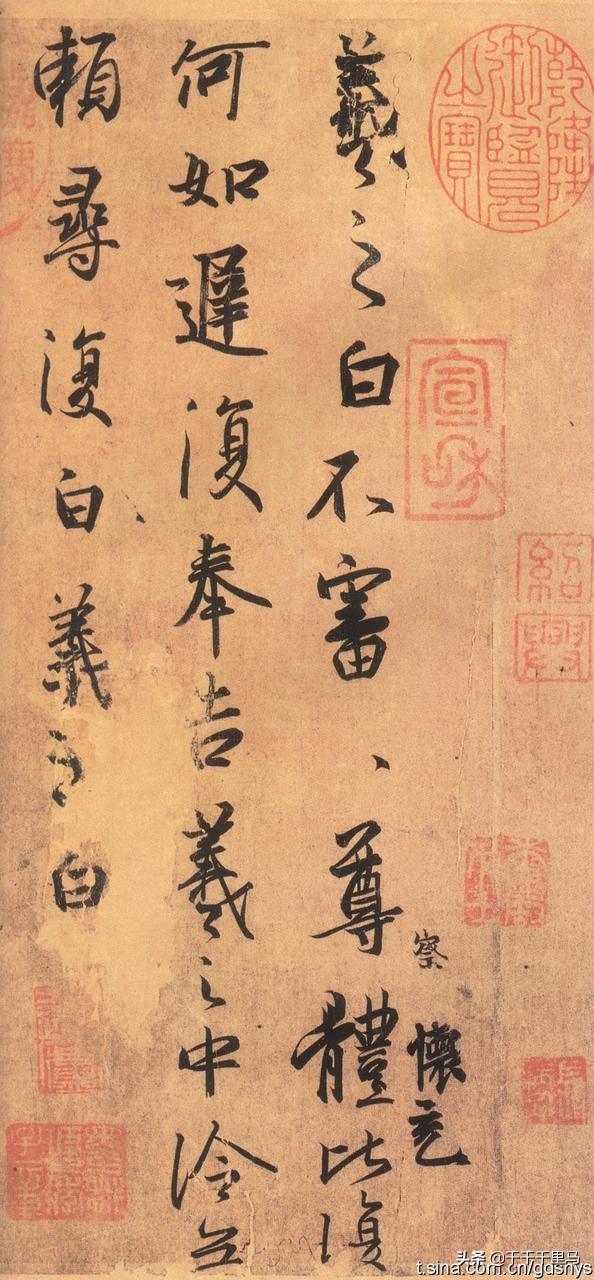 乾隆御覽之寶
宣和
紹興
察 懷充
羲之白不審、尊體比復
何如遲復奉告羲之中冷無
賴尋復白羲之白
头条 @千千千里马
t.sina.com.cn/gdsnys